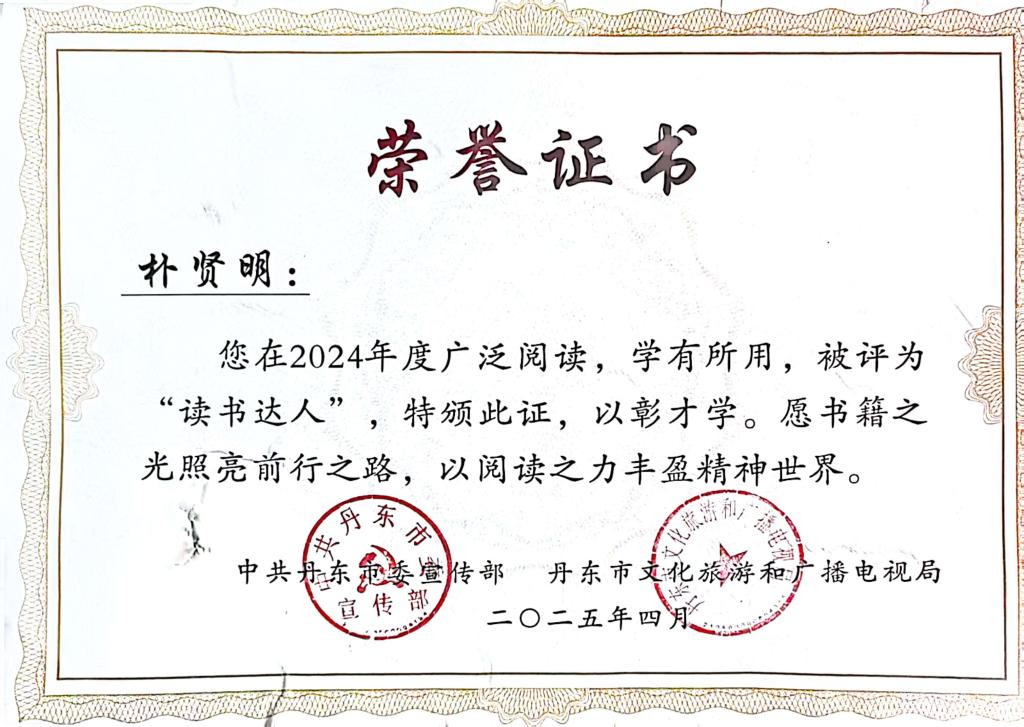 荣誉证书
朴贤明：
您在2024年度广泛阅读，学有所用，被评为
“读书达人”，特颁此证，以彰才学。愿书籍之
光照亮前行之路，以阅读之力丰盈精神世界。
中共丹东市委宣传部 丹东市文化旅游和广播电视局
二〇二五年四月
中共丹东市委
宣传部
丹东市文化旅游和广播电视局